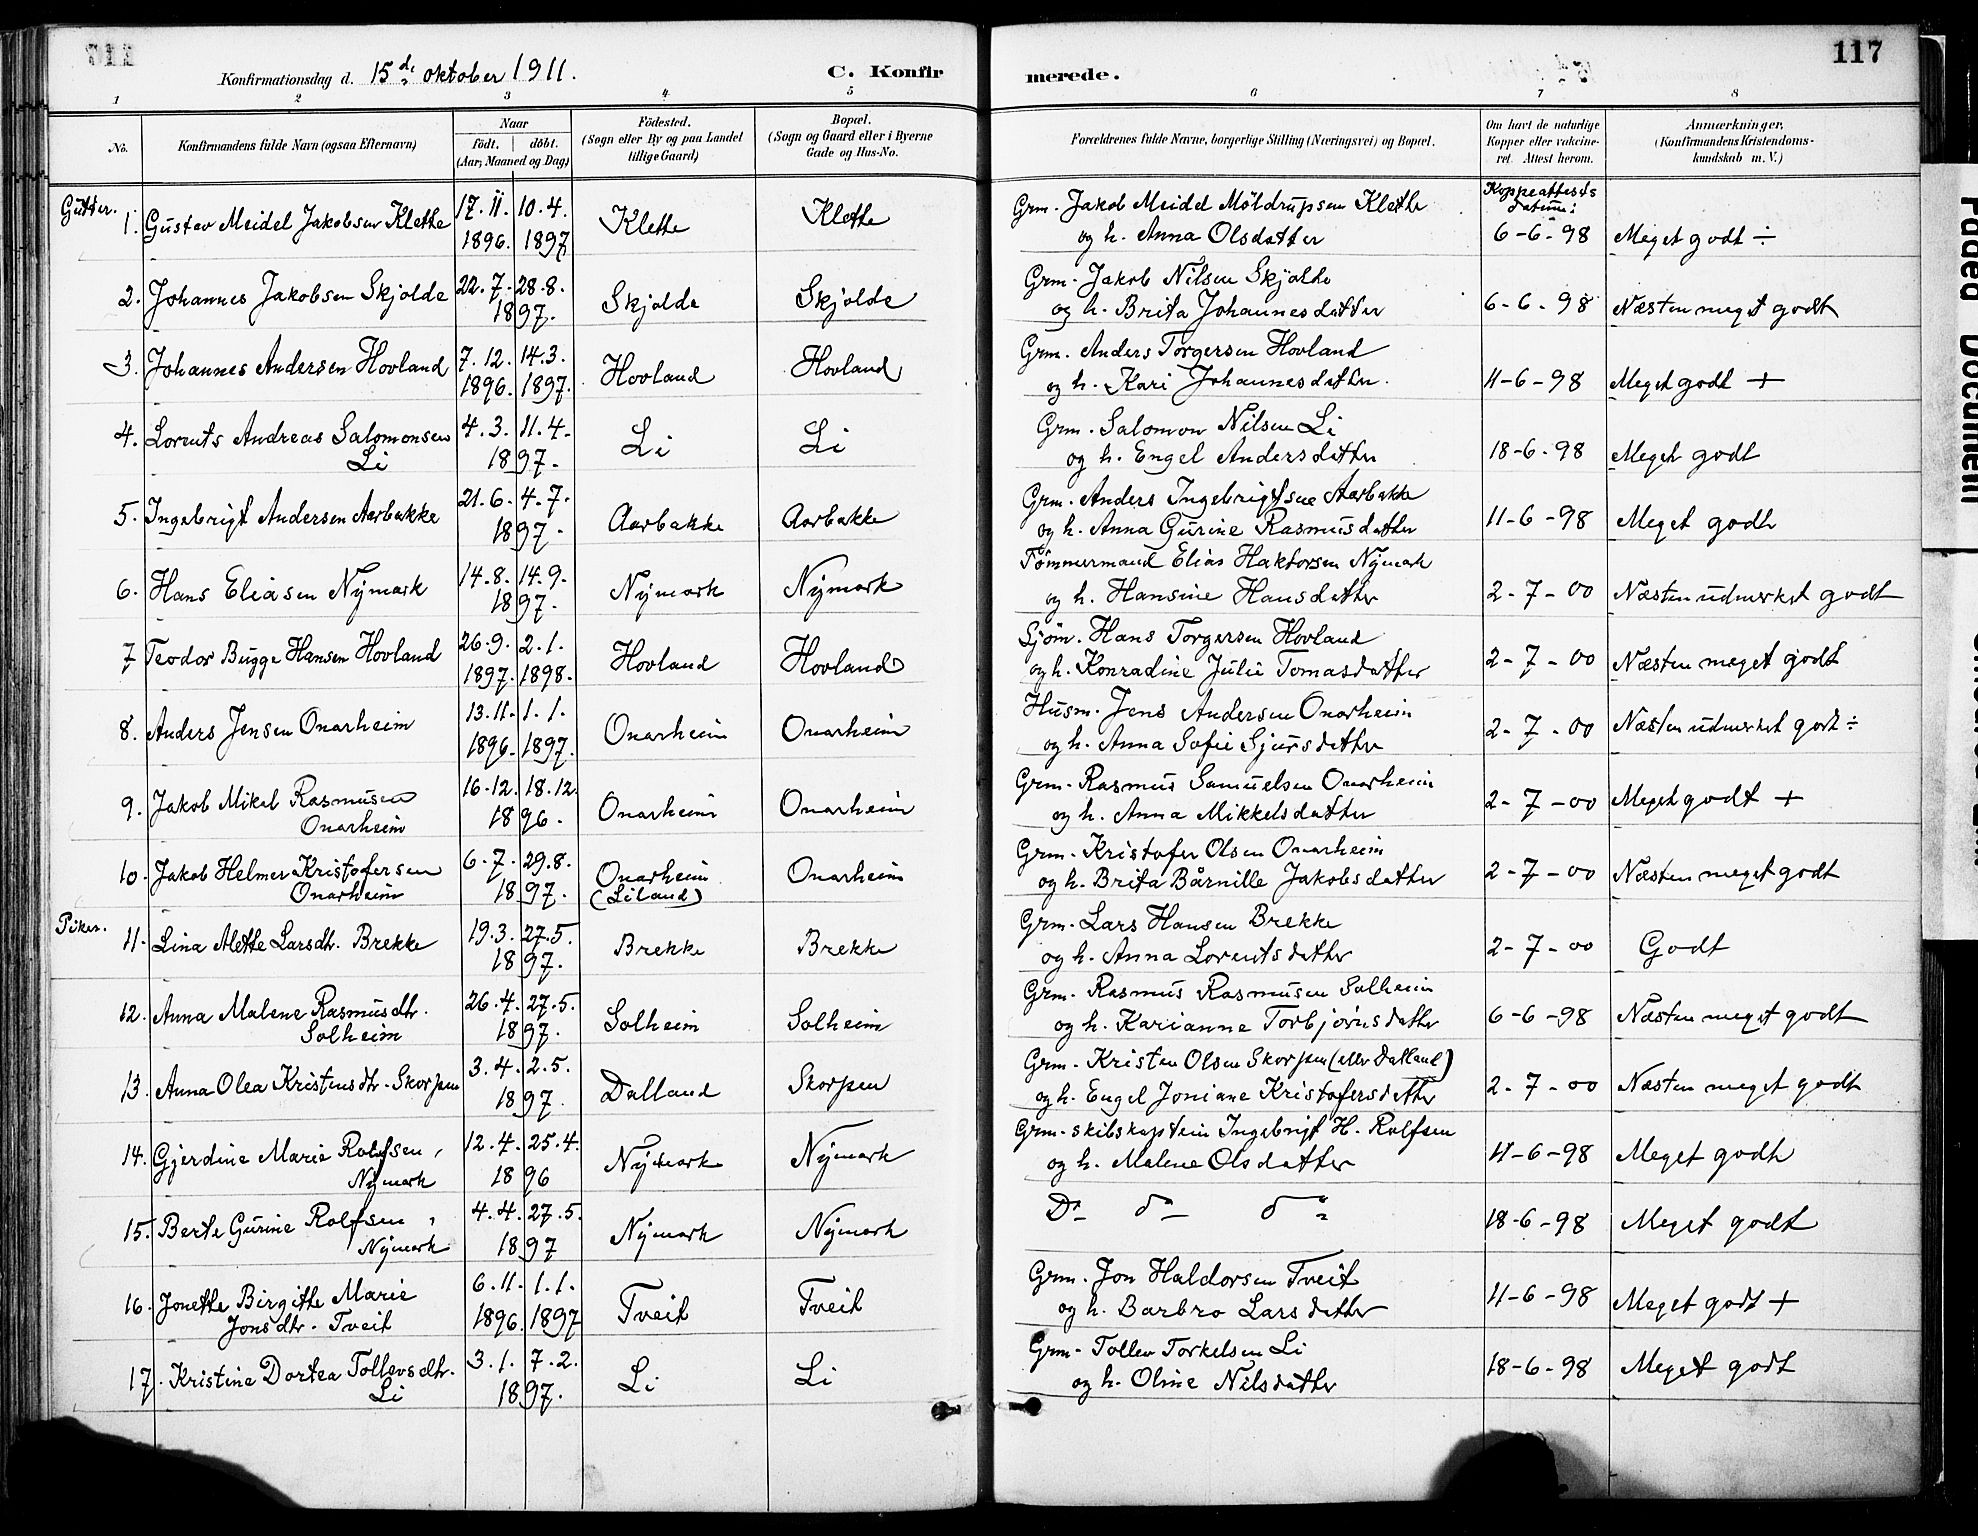 117
Konfirmationsdag d. 15de oktober 1911.
C. Konfirmerede.
1 2 3 4 5 6 7 8
No.
Konfirmandens fulde Navn (ogsaa Efternavn)
Naar
født. døbt.
(Aar, Maaned og Dag)
Fødested.
(Sogn eller By og paa Landet
tillige Gaard)
Bopæl.
(Sogn og Gaard eller i Byerne
Gade og Hus-No.
Forældrenes fulde Navne, borgerlige Stilling (Næringsvei) og Bopæl.
Om havt de naturlige
Kopper eller vakcine-
ret. Attest herom.
Anmærkninger,
(Konfirmandens Kristendoms-
kundskab m. V.)
Gutter.
Koppeattests
datum:
1. Gustav Meidel Jakobsen Klette 17.11. 10.4. Klette Klette Grm. Jakob Meidel Møldrupsen Klette
1896. 1897 og h. Anna Olsdatter 6-6-98 Meget godt ÷
2. Johannes Jakobsen Skjolde 22.7. 28.8. Skjolde Skjolde Grm. Jakob Nilsen Skjolde
1897. og h. Brita Johannesdatter 6-6-98 Næsten meget godt
3. Johannes Andersen Hovland 7.12. 14.3. Hovland Hovland Grm. Anders Torgersen Hovland
1896. 1897. og h. Kari Johannesdatter. 11-6-98 Meget godt +
4. Lorents Andreas Salomonsen 4.3. 11.4. Li Li Grm. Salomon Nilsen Li
Li 1897. og h. Engel Andersdatter 18-6-98 Meget godt
5. Ingebrigt Andersen Aarbakke 21.6. 4.7. Aarbakke Aarbakke Grm. Anders Ingebrigtsen Aarbakke
1897. og h. Anna Gurine Rasmusdatter 11-6-98 Meget godt
6. Hans Eliasen Nymark 14.8. 14.9. Nymark Nymark Tømmermand Elias Haktorsen Nymark
1897. og h. Hansine Hansdatter 2-7-00 Næsten udmerket godt
7 Teodor Bugge Hansen Hovland 26.9. 2.1. Hovland Hovland Sjøm. Hans Torgersen Hovland
1897. 1898. og h. Konradine Julie Tomasdatter 2-7-00 Næsten meget godt
8. Anders Jensen Onarheim 13.11. 1.1. Onarheim Onarheim Husm. Jens Andersen Onarheim
1896. 1897. og h. Anna Sofie Sjursdatter 2-7-00 Næsten udmerket godt ÷
9. Jakob Mikal Rasmusen 16.12. 18.12. Onarheim Onarheim Grm. Rasmus Samuelsen Onarheim
Onarheim 1896. og h. Anna Mikkelsdatter 2-7-00 Meget godt +
10. Jakob Helmer Kristofersen 6.7. 29.8. Onarheim Onarheim Grm. Kristofer Olsen Onarheim
Onarheim 1897. (Liland) og h. Brita Bårnille Jakobsdatter 2-7-00 Næsten meget godt
Piker.
11. Lina Alette Larsdtr. Brekke 19.3. 27.5. Brekke Brekke Grm. Lars Hansen Brekke
1897. og h. Anna Lorentsdatter 2-7-00 Godt
12. Anna Malene Rasmusdtr. 26.4. 27.5. Solheim Solheim Grm. Rasmus Rasmusen Solheim
Solheim 1897. og h. Karianne Torbjørnsdatter 6-6-98 Næsten meget godt
13. Anna Olea Kristensdtr. Skorpen 3.4. 2.5. Dalland Skorpen Grm. Kristen Olsen Skorpen (eller Dalland)
1897. og h. Engel Joniane Kristofersdatter 2-7-00 Næsten meget godt
14. Gjerdine Marie Rolfsen, 12.4. 25.4. Nymark Nymark Grm. skibskaptein Ingebrigt H. Rolfsen
Nymark 1896 og h. Malene Olsdatter 11-6-98 Meget godt
15. Berte Gurine Rolfsen, 4.4. 27.5. Nymark Nymark Do do do
Nymark 1897 18-6-98 Meget godt
16. Jonette Birgitte Marie 6.11. 1.1. Tveit Tveit Grm. Jon Haldorsen Tveit
Jonsdtr. Tveit 1896. 1897 og h. Barbro Larsdatter 11-6-98 Meget godt +
17. Kristine Dortea Tollevsdtr. 3.1. 7.2. Li Li Grm. Tollev Torkelsen Li
Li 1897. og h. Oline Nilsdatter 18-6-98 Meget godt